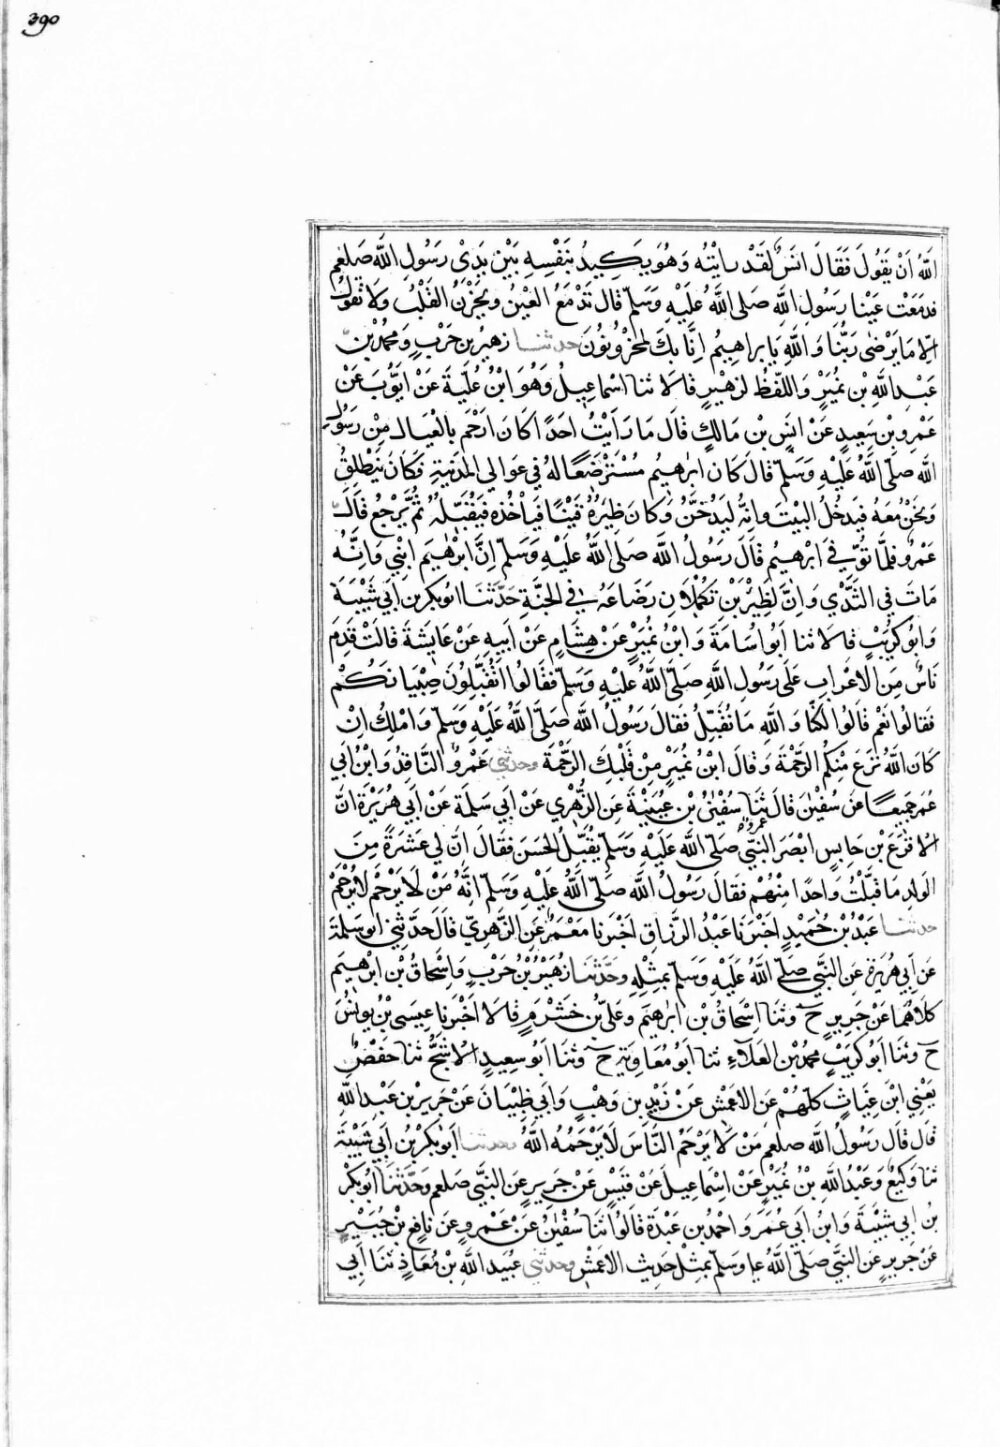 390
اللّٰهُ اَنْ يَقُولَ فَقَالَ اَنَسٌ لَقَدْ رايْتُه وَهُوَ يَكِيدُ بِنَفْسِهِ بَيْنَ يَدَىْ رَسُولِ اللّٰهِ صَلعم
فدمَعَتْ عَيْنا رَسُولِ اللّٰهِ صَلى اللّٰهُ عَلَيْهِ وَسَلّم قَالَ تَدْمَعُ العَيْنُ ويَحْزَنُ القَلْبُ وَلا نَقولُ
اِلّا مَا يَرْضٰى رَبُّنَا وَاللّٰهِ يَا اِبراهِيمُ اِنَّا بِكَ لَمحْزُونُونَ حدثنا زهيرُ بن حَرْبٍ وَمحمّدُ بْنُ
عَبْدِ اللّٰهِ بْنِ نُمَيْرٍ وَاللّفْظُ لزهَيْرٍ قالَا ثنا اسْمَاعِيلُ وَهُوَ ابْنُ عُلَيَّةَ عَنْ اَيّوُبَ عَنْ
عَمْرِو بْنِ سَعِيدٍ عَنْ اَنَسِ بْنِ مَالكٍ قَالَ مَا رَاَيْتُ احَدًا كَانَ اَرْحَمَ بالْعِيالِ مِنْ رَسُولِ
اللّٰهِ صلّى اللّٰهُ عَلَيْهِ وَسَلّم قالَ كَانَ ابْرٰهِيمُ مُسْتَرْضَعًا لهُ فِي عَوَالِي المَدينَةِ فكَانَ يَنْطَلِقُ
وَنحْنُ مَعَهُ فيَدْخُلُ البيْتَ وانّه لَيُدَخَّنُ وَكَانَ ظِيْرُهُ قَيْنًا فيَاْخُذه فَيُقَبّلهُ ثمَّ يَرْجعُ قَالَ
عَمْرٌو فلمَّا تُوُفّيَ ابْرهِيمُ قَالَ رَسُولُ اللّٰهِ صَلى اللّٰهُ عَلَيْهِ وَسَلّم اِنَّ ابْرهِيَم ابْنِي وَانَّهُ
مَاتَ فِي الثَّدْيِ وَانَّ لهُ لَظِيْرَيْنِ تُكْمِلَانِ رَضَاعَهُ في الجَنَّةِ حَدَّثَنَا ابُوبَكرِ بن اَبي شَيْبَةَ
وَابُو كُرَيْبٍ قَالَا ثنا اَبُو اسَامَةَ وَابْنُ نُمَيْرٍ عَنْ هِشَامٍ عَنْ اَبيهِ عَنْ عَايشَةَ قَالتْ قَدِمَ
نَاسٌ مِنَ الاَعْرَابِ عَلَى رَسُولِ اللّٰهِ صَلّى اللّٰهُ عَلَيْهِ وَسَلّم فقَالُوا اَتُقَبّلُونَ صِبْيَانَكُمْ
فَقالُوا نَعَمْ قَالُوا لٰكنّا وَاللّٰهِ مَا نُقَبّلُ فَقالَ رَسُولُ اللّٰهِ صَلَّى اللّٰهُ عَلَيْهِ وَسَلّم وَاَمْلِكُ اِنْ
كَانَ اللّٰهُ نَزَعَ مِنْكُم الرَحْمَةَ وَقالَ ابْنُ نُمَيْرٍ مِنْ قَلْبِكَ الرَحْمَةَ وحدثني عَمْرٌو النَّاقِدُ وَابْنُ اَبي
عُمَرَ جَمِيعًا عَن سُفْيٰنَ قَالَ ثَنَا سُفْيٰنُ بْن عُيَيْنَةَ عَنِ الزُهْرِي عَنْ اَبي سَلَمَة عَنْ اَبي هُرَيْرَةَ انَّ
الاقْرَعَ بْن حَابِسٍ ابْصَرَ النَّبِّيَ صَلّى اللّٰه عَلَيْهِ وَسَلّم يُقَبّلُ الحَسَن فقَالَ انَّ لي عَشَرَةً مِنَ
الوَلدِ مَا قَبَّلْتُ وَاحدًا مِنْهُمْ فَقالَ رَسُولُ اللّٰه صَلّى اللّٰهُ عَلَيْهِ وَسَلّم انَّهُ مَنْ لَا يَرْحَمْ لا يُرْحَمْ
حدثنا عَبْدُ بْن حُمَيْدٍ اَخْبَرَنَا عَبْدُ الرزَّاقِ اَخْبَرنا مَعْمَرٌ عَنِ الزّهْرِيّ قَالَ حَدَّثنِي ابو سَلَمَةَ
عَن اَبي هُرَيرَة عَنِ النَبّيِ صَلّى اللّٰهُ عَلَيْهِ وَسَلّم بِمثْلِهِ وحَدَّثنَا زهَيْرُ بْنُ حَرْبٍ وَاِسْحَاقُ بْن ابْرٰهِيمَ
كلَاهُمَا عَنْ جَرِيرٍ ح وثنَا اِسْحَاقُ بْن ابْرَاهِيَم وَعَلىُّ بْن خَشْرَمٍ قالَا اَخْبَرنَا عِيسَى بْنُ يُونُسَ
ح وثنَا اَبوكُرَيْبٍ محمدُ بْن العَلَاءِ ثنا اَبُو مُعَاوِيَة ح وثنَا اَبُو سَعِيدٍ الاشَجُّ ثنا حَفْصٌ
يَعْنِي ابْنَ غِيَاثٍ كلّهُمْ عَنِ الاعْمَشِ عَنْ زَيْدِ بن وَهْبٍ وَاَبي ظِبْيَانَ عَنْ جَرير بْن عَبْدِ اللّٰهِ
قَالَ قَالَ رَسُولُ اللّٰهِ صَلعم مَنْ لَا يَرْحَمُ النَّاسَ لَا يَرْحَمُهُ اللّٰهُ وحدثنا اَبُوبَكْرُ بْنُ اَبي شَيْبَةَ
ثنا وَكِيعٌ وَعَبْدُ اللّٰهِ بْنُ نُمَيْرٍ عَنْ اِسْمَاعِيلَ عَنْ قَيْسٍ عَنْ جَرِيرٍ عَنِ النَبّيِ صَلعم وحَدّثنَا ابُوبَكْر
بْنُ اَبي شَيْبَةَ وَابْنُ اَبي عُمَرَ وَاحْمَدُ بن عَبْدَةَ قَالُوا ثنَا سُفْيٰنُ عَنْ عَمْرٍو عَنْ نَافِعِ بْنِ جُبَيْرٍ
عَنْ جَرِيرٍ عَنِ النَبّيِ صَلّى اللّٰهُ علي وَسَلّم بمثْلِ حَدِيثِ الاعْمَشِ وحدثني عُبَيدُ اللّٰهِ بْنُ مُعَاذٍ ثنا اَبي